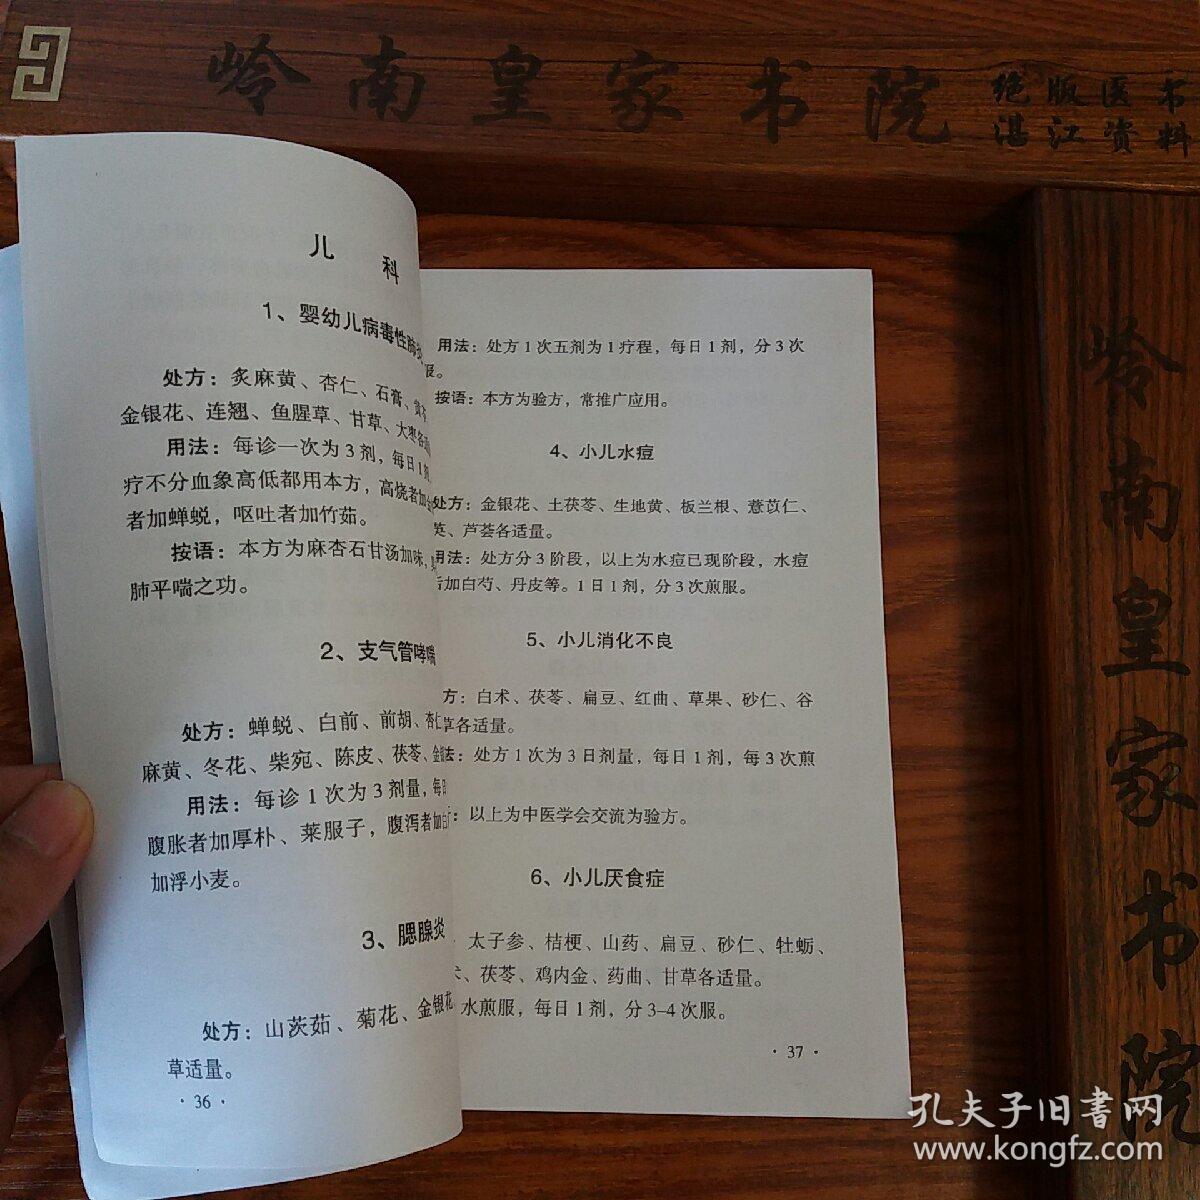 岭南皇家书院
绝版医书
湛江资料
儿 科
1、婴幼儿病毒性肺炎
处方：炙麻黄、杏仁、石膏、黄
金银花、连翘、鱼腥草、甘草、大枣各适
用法：每诊一次为3剂，每日1剂，
疗不分血象高低都用本方，高烧者加
者加蝉蜕，呕吐者加竹茹。
按语：本方为麻杏石甘汤加味，
肺平喘之功。
2、支气管哮喘
处方：蝉蜕、白前、前胡、杏仁
麻黄、冬花、柴宛、陈皮、茯苓、金
用法：每诊1次为3剂量，每日
腹胀者加厚朴、莱服子，腹泻者加白
加浮小麦。
3、腮腺炎
处方：山茨茹、菊花、金银花
草适量。
·36·
用法：处方1次五剂为1疗程，每日1剂，分3次
服。
按语：本方为验方，常推广应用。
4、小儿水痘
处方：金银花、土茯苓、生地黄、板兰根、薏苡仁、
英、芦荟各适量。
用法：处方分3阶段，以上为水痘已现阶段，水痘
后加白芍、丹皮等。1日1剂，分3次煎服。
5、小儿消化不良
方：白术、茯苓、扁豆、红曲、草果、砂仁、谷
草各适量。
法：处方1次为3日剂量，每日1剂，每3次煎
：以上为中医学会交流为验方。
6、小儿厌食症
、太子参、桔梗、山药、扁豆、砂仁、牡蛎、
术、茯苓、鸡内金、药曲、甘草各适量。
水煎服，每日1剂，分3-4次服。
·37·
岭南皇家书院
孔夫子旧書网
www.kongfz.com